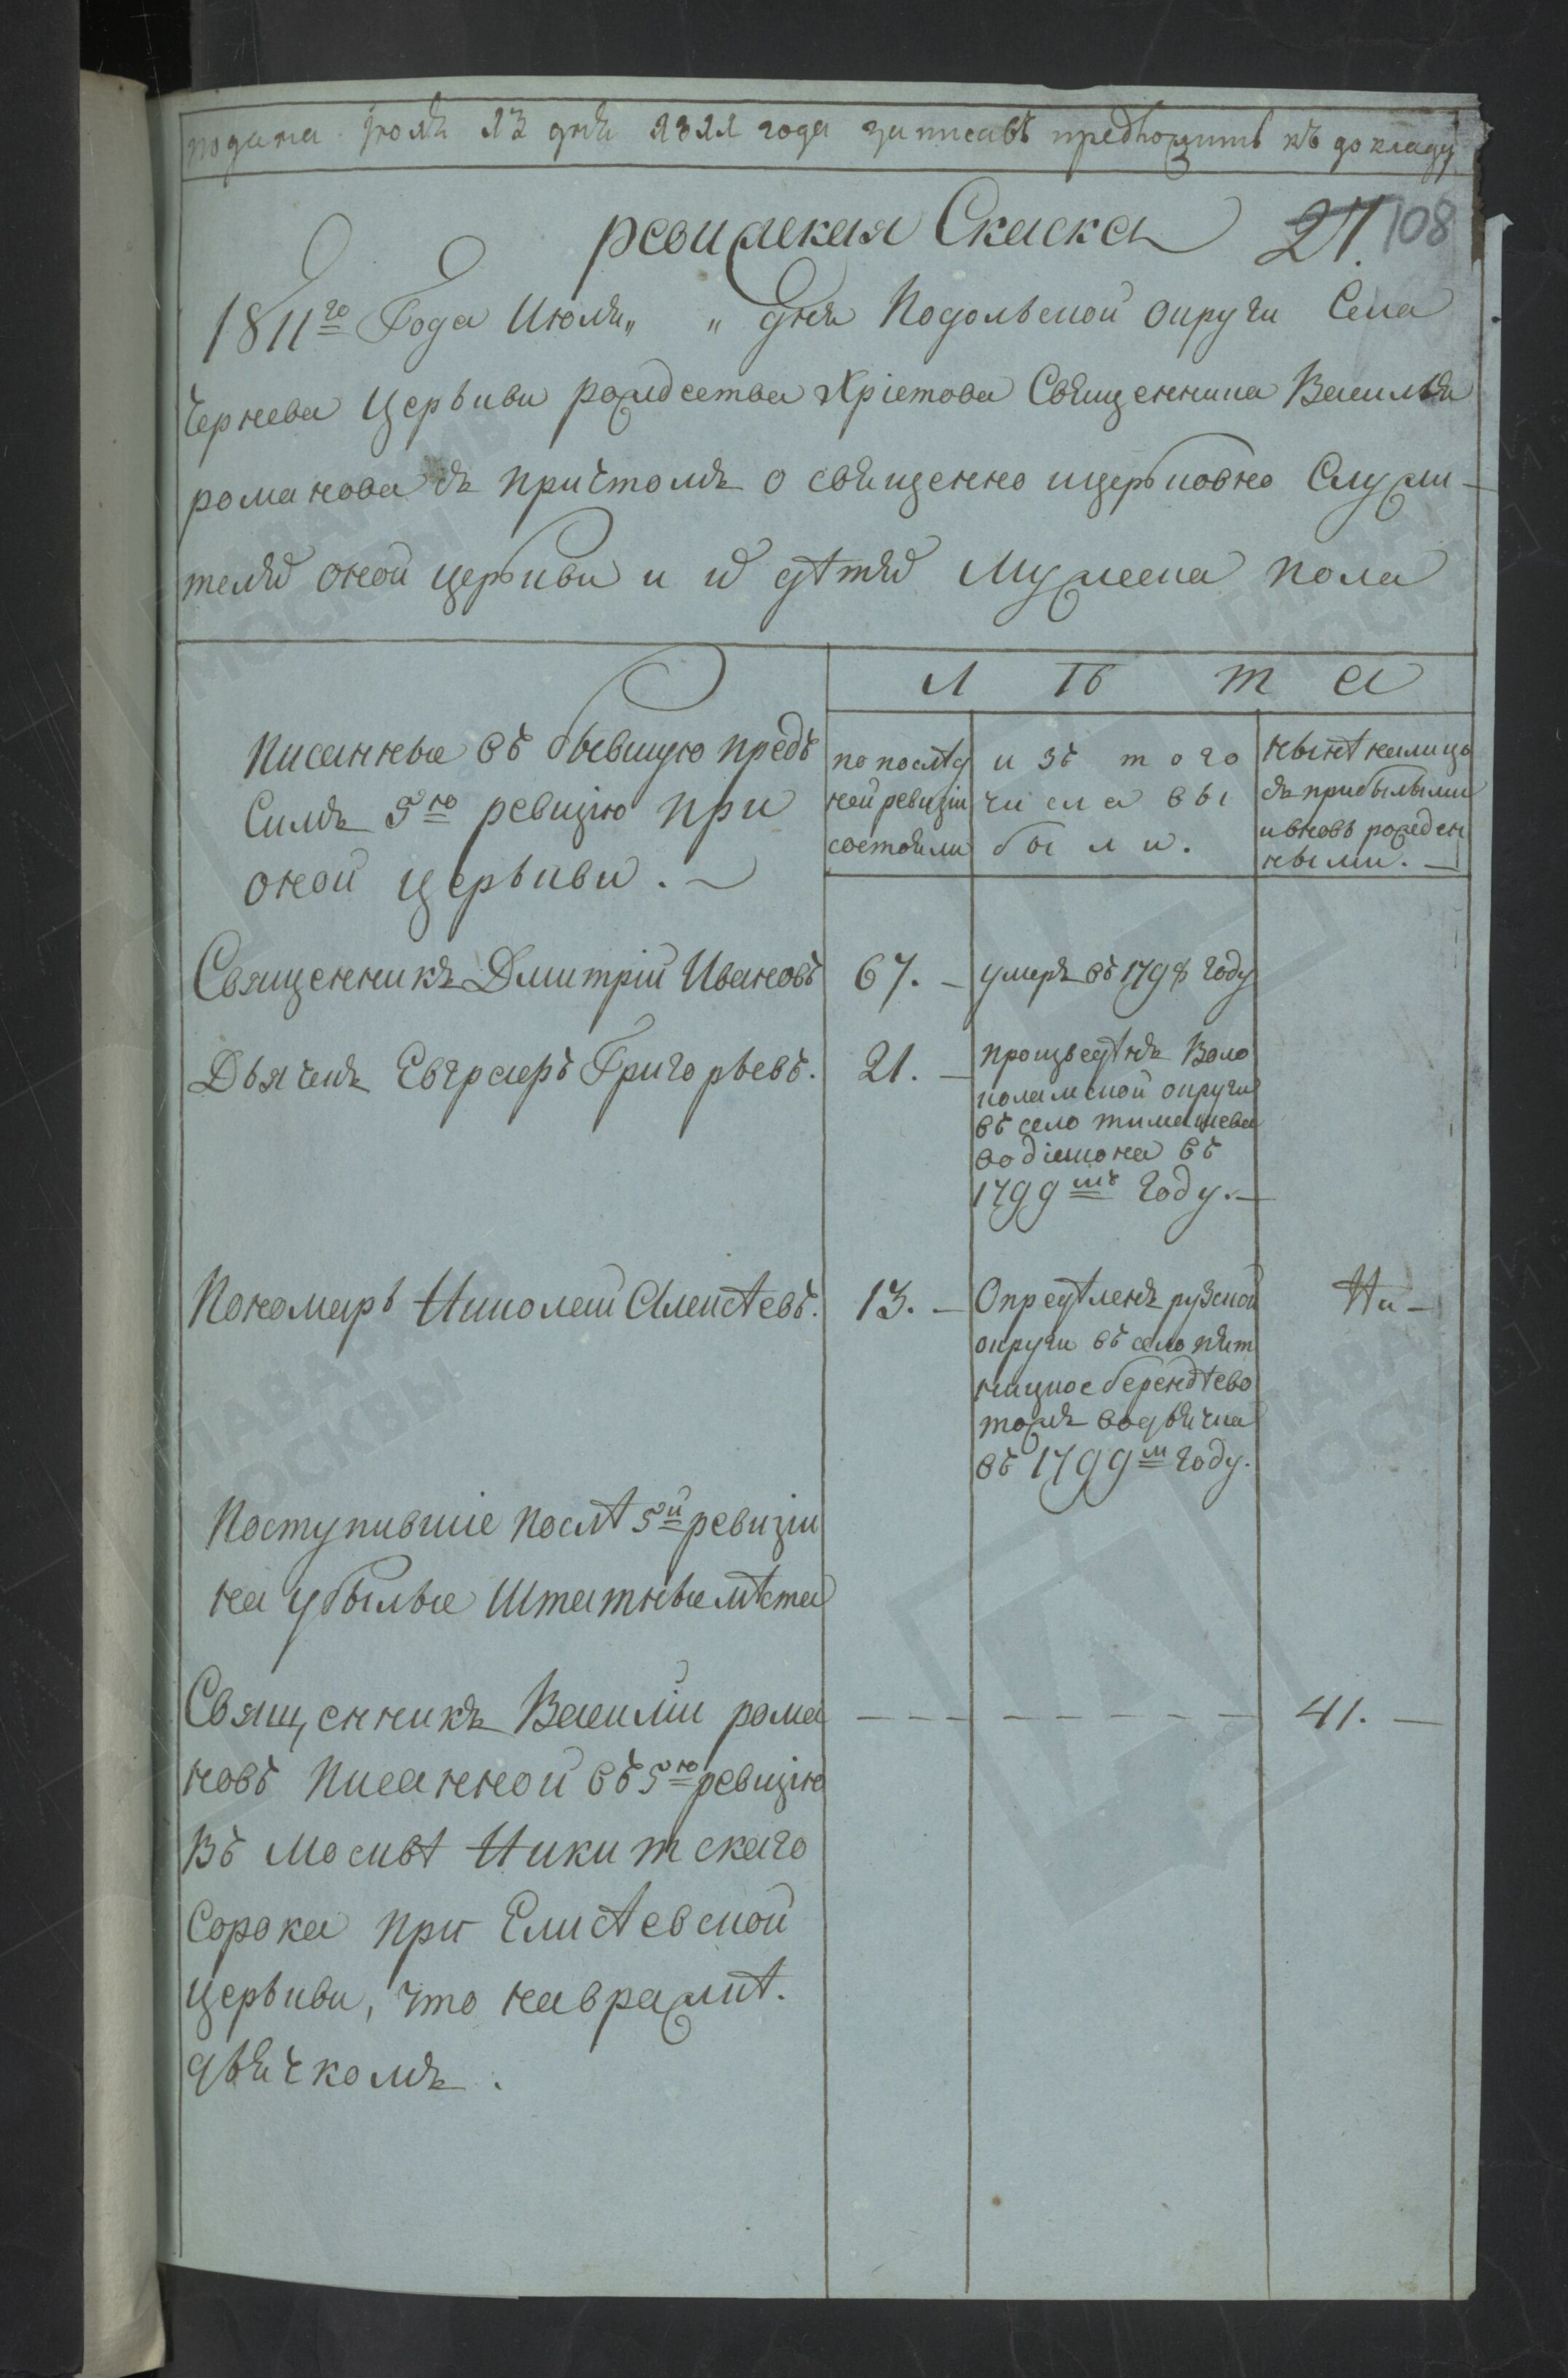 подана июля 13 дня 1811 года записавъ предложить къ докладу
ревижская Скаска 27. 108
1811го Года Июля „ „ дня Подольской округи Села
Чернева Церькви рождества Хрiстова Священника Василья
романова съ причтомъ о священно ицерьковно Служи-
теляхъ оной церькви и ихъ дѣтяхъ Мужеска пола
Л Ѣ Т А
Писанные въ бывшую предъ
Симъ 5ю ревизiю при
оной церькви.
по послѣд
ней ревизiи
состояли
изъ того
числа вы
были.
нынѣ налицо
съ прибылыми
ивновь рожден
ными.
Священникъ Дмитрiй Ивановъ 67. – умеръ въ 1798 году
Дьячекъ Евграфъ Григорьевъ. 21. – произведенъ Воло
коламской округи
въ село тимашева
во дiакона въ
1799мъ году.–
Пономарь Николай Алексѣевъ. 13. – Опредѣленъ рузской Ни –
округи въ село пят
ницкое берендѣево
тожъ водьячка
въ 1799м году.
Поступившiе послѣ 5й ревизiи
на убылые Штатные мѣста
Священникъ Василiй рома – – – – – – – – 41. –
новъ писанной въ 5ю ревизiю
Въ Москвѣ Никитскаго
Сорока при Елисѣевской
церькви, что навражкѣ.
дьячкомъ.